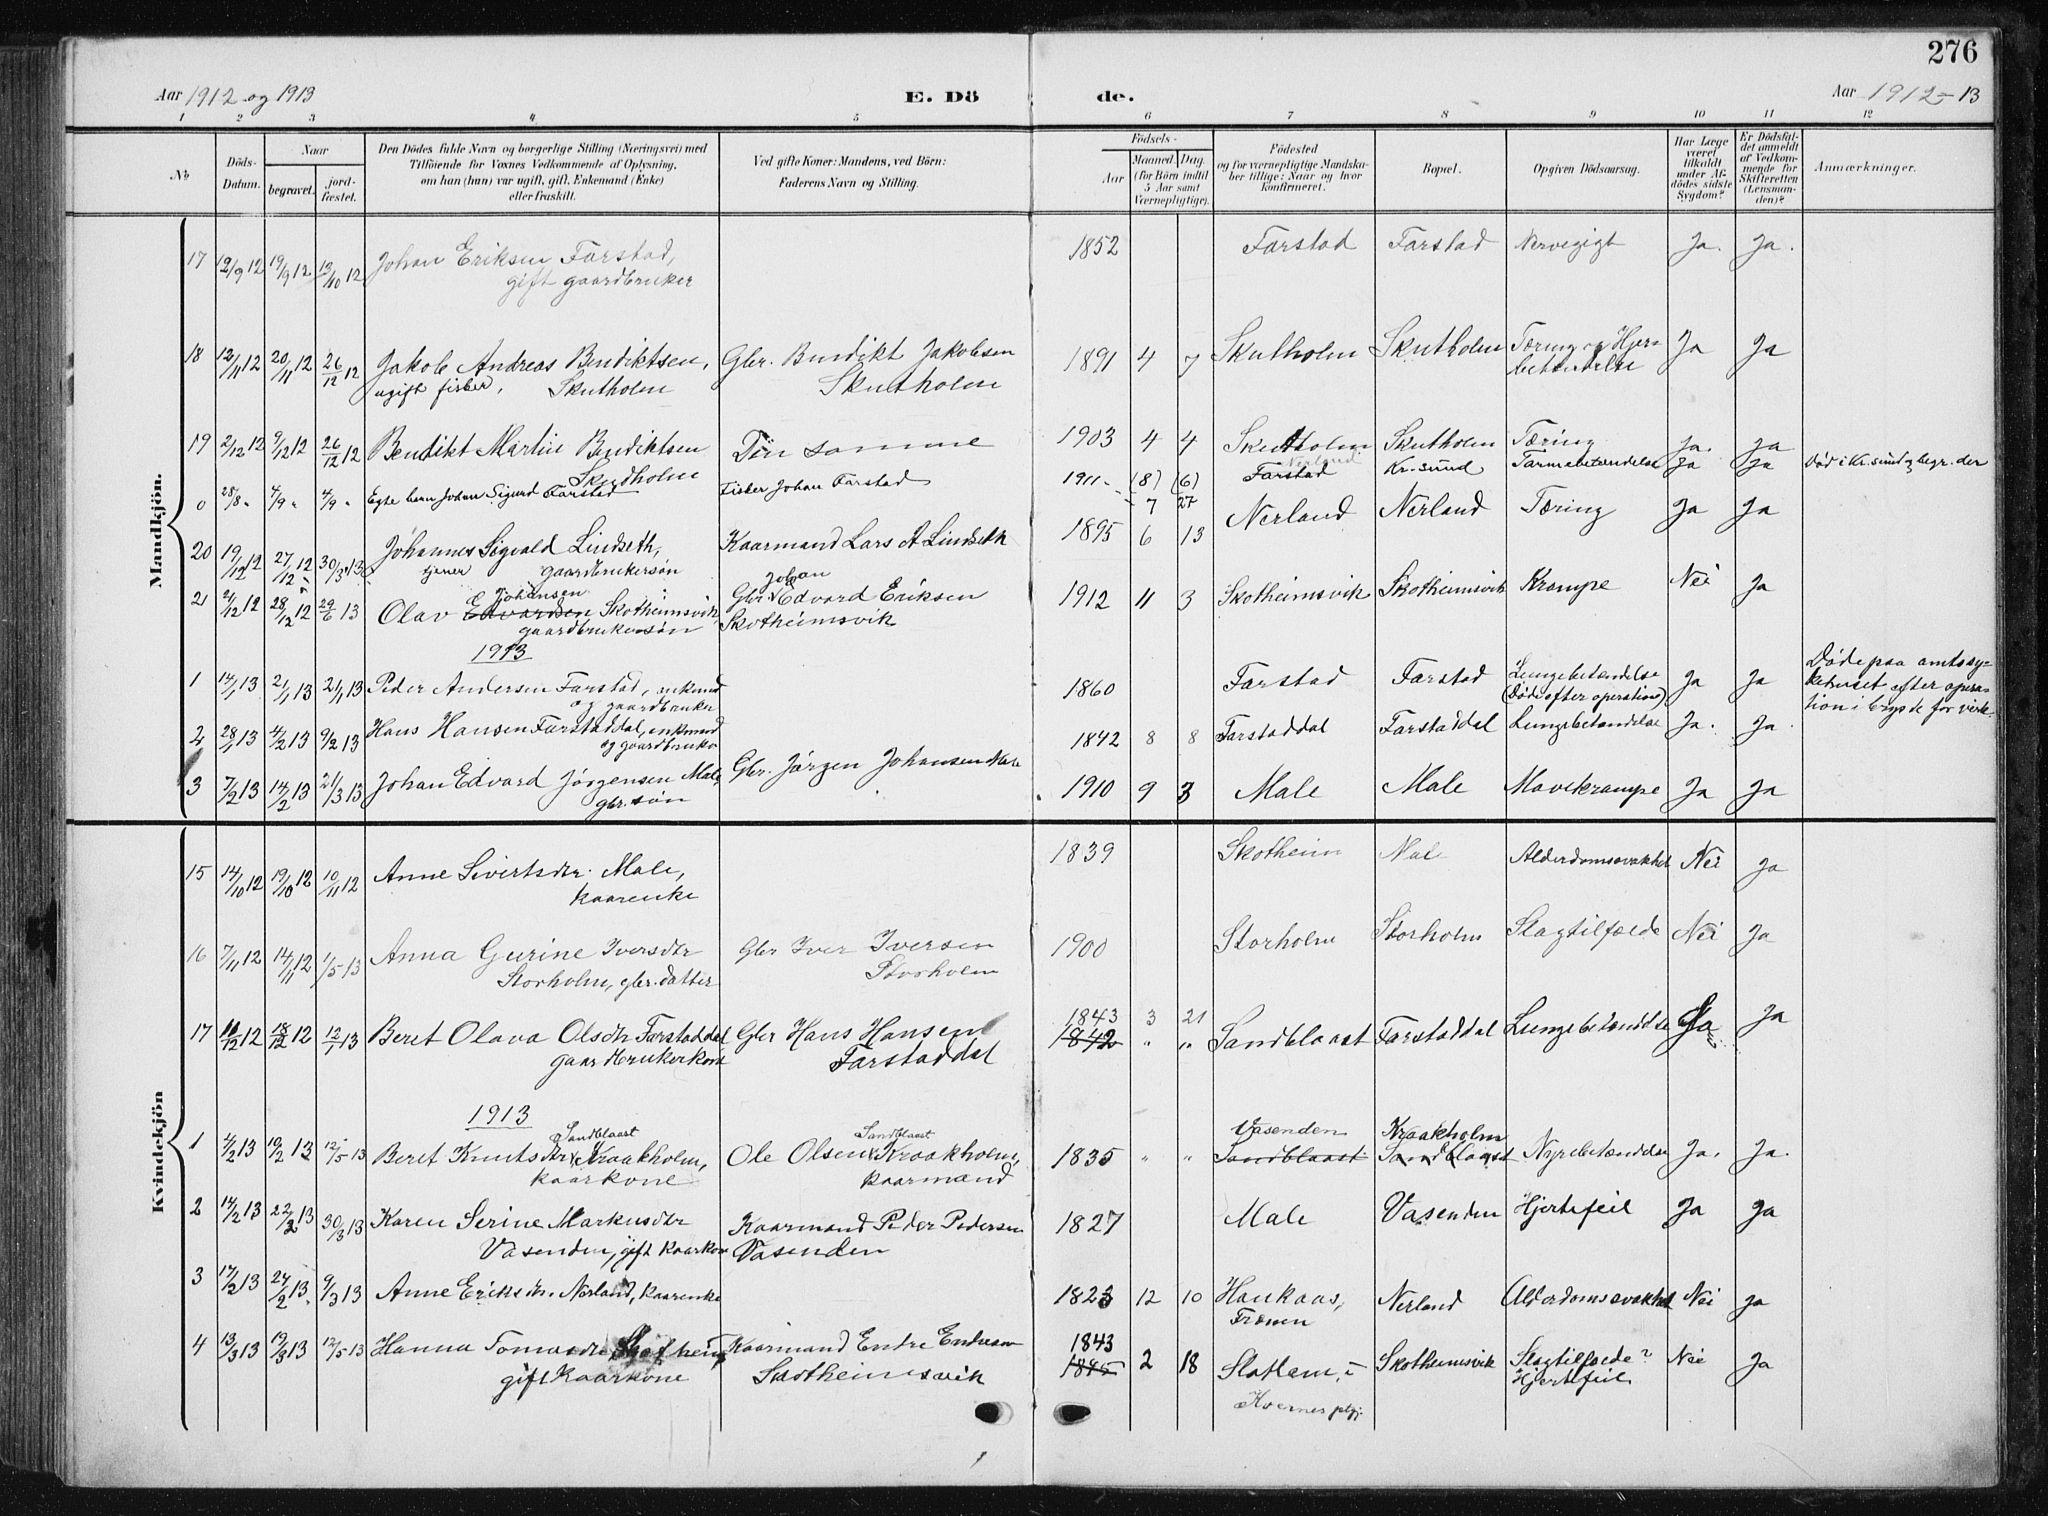 276
Aar 1912 og 1913 E. Dö de. Aar 1912-13
1 2 3 4 5 6 7 8 9 10 11 12
No
Döds-Datum.
Naar
begravet.
jord-fæstet.
Den Dödes fulde Navn og borgerlige Stilling (Næringsvei) med
Tilföiende for Voxnes Vedkommende af Oplysning,
om han (hun) var ugift, gift, Enkemand (Enke)
eller fraskilt.
Ved gifte Koner: Mandens, ved Börn:
Faderens Navn og Stilling.
Födsels-
Aar
Maaned. Dag.
(for Börn indtil
5 Aar samt
Værnepligtige).
Födested
og for værnepligtige Mandska-
ber tillige: Naar og hvor
konfirmeret.
Bopæl.
Opgiven Dödsaarsag.
Har Læge
været
tilkaldt
under Af-
dödes sidste
Sygdom?
Er Dödsfal-
det anmeldt
af Vedkom-
mende for
Skifteretten
(Lensman-
den)?
Anmærkninger.
Mandkjön.
17 12/9 12 19/9 12 13/10 12 Johan Eriksen Farstad, 1852 Farstad Farstad Nervegigt Ja. Ja.
gift gaardbruker
18 12/11 12 20/11 12 26/12 12 Jakob Andreas Bendiktsen, Gbr. Bendikt Jakobsen 1891 4 7 Skutholm Skutholm Tæring og Hjer- Ja Ja
ugift fisker, Skutholm Skutholm betændelse
19 2/12 12 9/12 12 26/12 12 Bendikt Martin Bendiktsen Den samme 1903 4 4 Skutholm Skutholm Tæring Ja. Ja
Skutholm Nerland
0 28/8 " 4/9 " 4/9 " Egte barn Johan Sigurd Farstad Fisker Johan Farstad 1911 (8) (6) Farstad Kr.sund Tarmebetændelse Ja Ja Död i Kr.sund og begr. der
7 27
20 19/12 12 27/12 12 30/3 13 Johannes Sigvald Lindseth, Kaarmand Lars A Lindseth 1895 6 13 Nerland Nerland Tæring Ja Ja
tjener gaardbrukersøn
Johansen Johan
21 24/12 12 28/12 12 29/6 13 Olav Edvardsen Skotheimsvik, Gbr. Edvard Eriksen 1912 11 3 Skotheimsvik Skotheimsvik Krampe Nei Ja
gaardbrukersøn Skotheimsvik
1913
1 14/1 13 21/1 13 21/1 13 Peder Andersen Farstad, enkemd 1860 Farstad Farstad Lungebetændelse Ja Ja Døde paa amtssy-
og gaardbruker (Døde efter operation) kehuset efter opera-
tion i
2 28/1 13 4/2 13 9/2 13 Hans Hansen Farstaddal, enkmand 1842 8 8 Farstaddal Farstaddal Lungebetændelse Ja. Ja.
og gaardbruker
3 7/2 13 14/2 13 21/3 13 Johan Edvard Jørgensen Male, Gbr. Jørgen Johansen Male 1910 9 3 Male Male Mavekrampe Ja Ja
gbr. søn
Kvindekjön
15 14/10 12 19/10 12 10/11 12 Anne Sivertsdtr. Male, 1839 Skotheim Male Alderdomssvakhet Nei Ja
kaarenke
16 7/11 12 14/11 12 1/5 13 Anna Gurine Iversdtr Gbr Iver Iversen 1900 Storholm Storholm Slagtilfælde Nei Ja
Storholm, gbr. datter Storholm
17 10/12 12 18/12 12 12/1 13 Beret Olava Olsdtr Farstaddal Gbr Hans Hansen 1843 3 21 Sandblaast Farstaddal Lungebetændelse Ja Ja
gaardbrukerkone Farstaddal 1842 " "
1913
Sandblaast Sandblaast Vasenden Kraakholm
1 4/2 13 10/2 13 12/5 13 Beret Knutsdtr Kraakholm, Ole Olsen Kraakholm, 1835 " " Sandblaast Sandblaast Nyrebetændelse Ja. Ja.
kaarkone kaarmand
2 14/2 13 22/2 13 30/3 13 Karen Serine Markusdtr Kaarmand Peder Pedersen 1827 Male Vasenden Hjertefeil Ja Ja
Vasenden, gift kaarkone Vasenden
3 17/2 13 24/2 13 9/3 13 Anne Eriksdtr. Nerland, kaarenke 1823 12 10 Haukaas, Nerland Alderdomssvakhet Nei Ja
Frænen
4 13/3 13 19/3 13 12/5 13 Hanna Tomasdtr Skotheim Kaarmand Endre Endresen 1843 2 18 Skotheimsvik Slagtilfælde? Nei Ja
gift kaarkone Skotheimsvik 1845 Hjertefeil
Kvernes pgj.